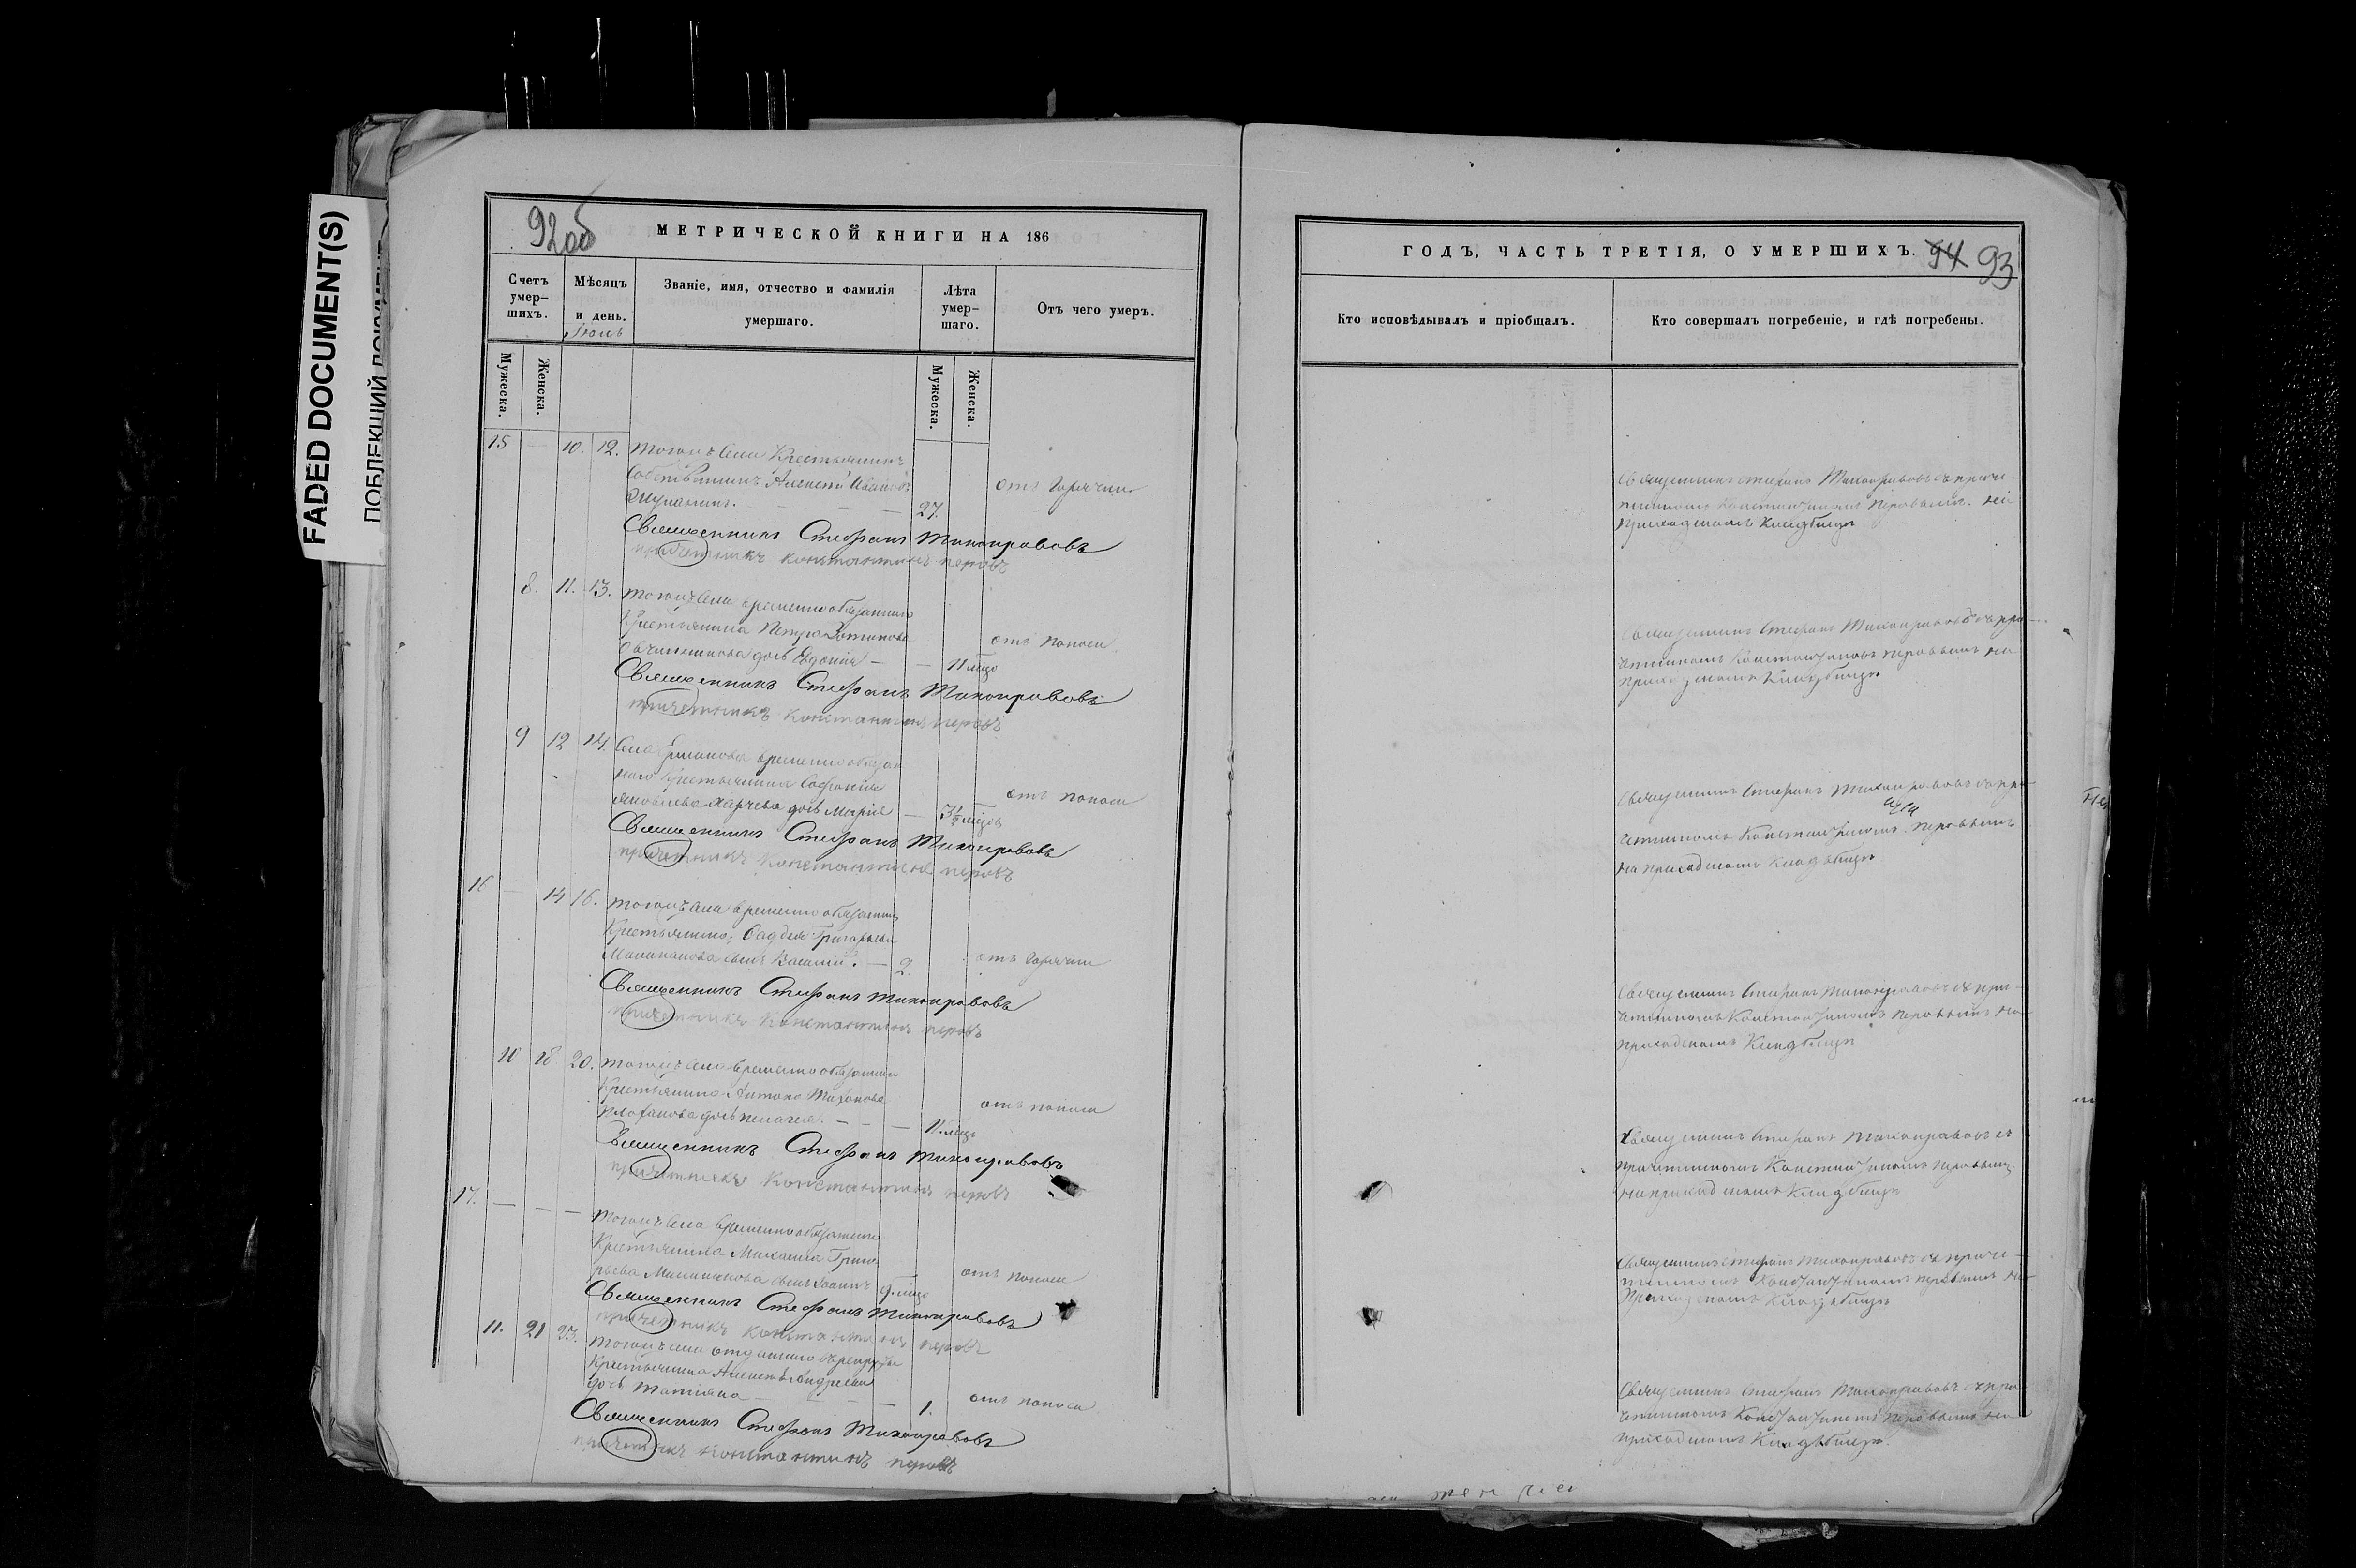 FADED DOCUMENT(S)
92об
МЕТРИЧЕСКОЙ КНИГИ НА 186
Счетъ умер-шихъ.
Мѣсяцъ и день.
Званіе, имя, отчество и фамилія умершаго.
Лѣта умер-шаго.
Отъ чего умеръ.
Мужеска.
Женска.
Мужеска.
Женска.
15 10. 12. Тогожъ села Крестьянинъ
Собственникъ Алексей Иванов
27.
отъ горячки
Священникъ Стефанъ Тихонравовъ
причетникъ Константинъ перовъ
8. 11. 13. Тогожъ села временно обязаннаго
Крестьянина Петра
дочь Евдокія 11 мѣсяц
отъ поноса
Священникъ Стефанъ Тихонравовъ
причетникъ Константинъ перовъ
9 12 14. Села временно обязан
наго крестьянина Софронія
Яковлева дочь Марія 3½ мѣсяц
отъ поноса
Священникъ Стефанъ Тихонравовъ
причетникъ Константинъ перовъ
16 14 16. Тогожъ села временно обязаннаго
Крестьянина Григорьева
сынъ Василий. 2.
отъ горячки
Священникъ Стефанъ Тихонравовъ
причетникъ Константинъ перовъ
10 18 20. Тогожъ села временно обязаннаго
Крестьянина Антона
дочь пелагея. 11. мѣсяц
отъ поноса
Священникъ Стефанъ Тихонравовъ
причетникъ Константинъ перовъ
17. Тогожъ села временно обязаннаго
Крестьянина Михаила Григо
рьева сынъ Иоаннъ
отъ поноса
Священникъ Стефанъ Тихонравовъ
причетникъ Константинъ перовъ
11. 21 23. Тогожъ села отданнаго в рекруты
Крестьянина Алексея Андреева
дочь Татіана 1.
отъ поноса
Священникъ Стефанъ Тихонравовъ
причетникъ Константинъ перовъ
ГОДЪ, ЧАСТЬ ТРЕТІЯ, О УМЕРШИХЪ.
94 93
Кто исповѣдывалъ и пріобщалъ.
Кто совершалъ погребеніе, и гдѣ погребены.
Священникъ Стефанъ Тихонравовъ съ приче
тникомъ Константиномъ Перовымъ на
приходскомъ кладбище
Священникъ Стефанъ Тихонравовъ съ при
четникомъ Константиномъ Перовымъ на
приходскомъ кладбище
Священникъ Стефанъ Тихонравовъ съ при
четникомъ Константиномъ Перовымъ
на приходскомъ кладбище
Священникъ Стефанъ Тихонравовъ съ при
четникомъ Константиномъ Перовымъ на
приходскомъ кладбище
Священникъ Стефанъ Тихонравовъ съ
причетникомъ Константиномъ Перовымъ
на приходскомъ кладбище
Священникъ Стефанъ Тихонравовъ съ приче
тникомъ Константиномъ Перовымъ на
приходскомъ кладбище
Священникъ Стефанъ Тихонравовъ съ при
четникомъ Константиномъ Перовымъ на
приходскомъ кладбище